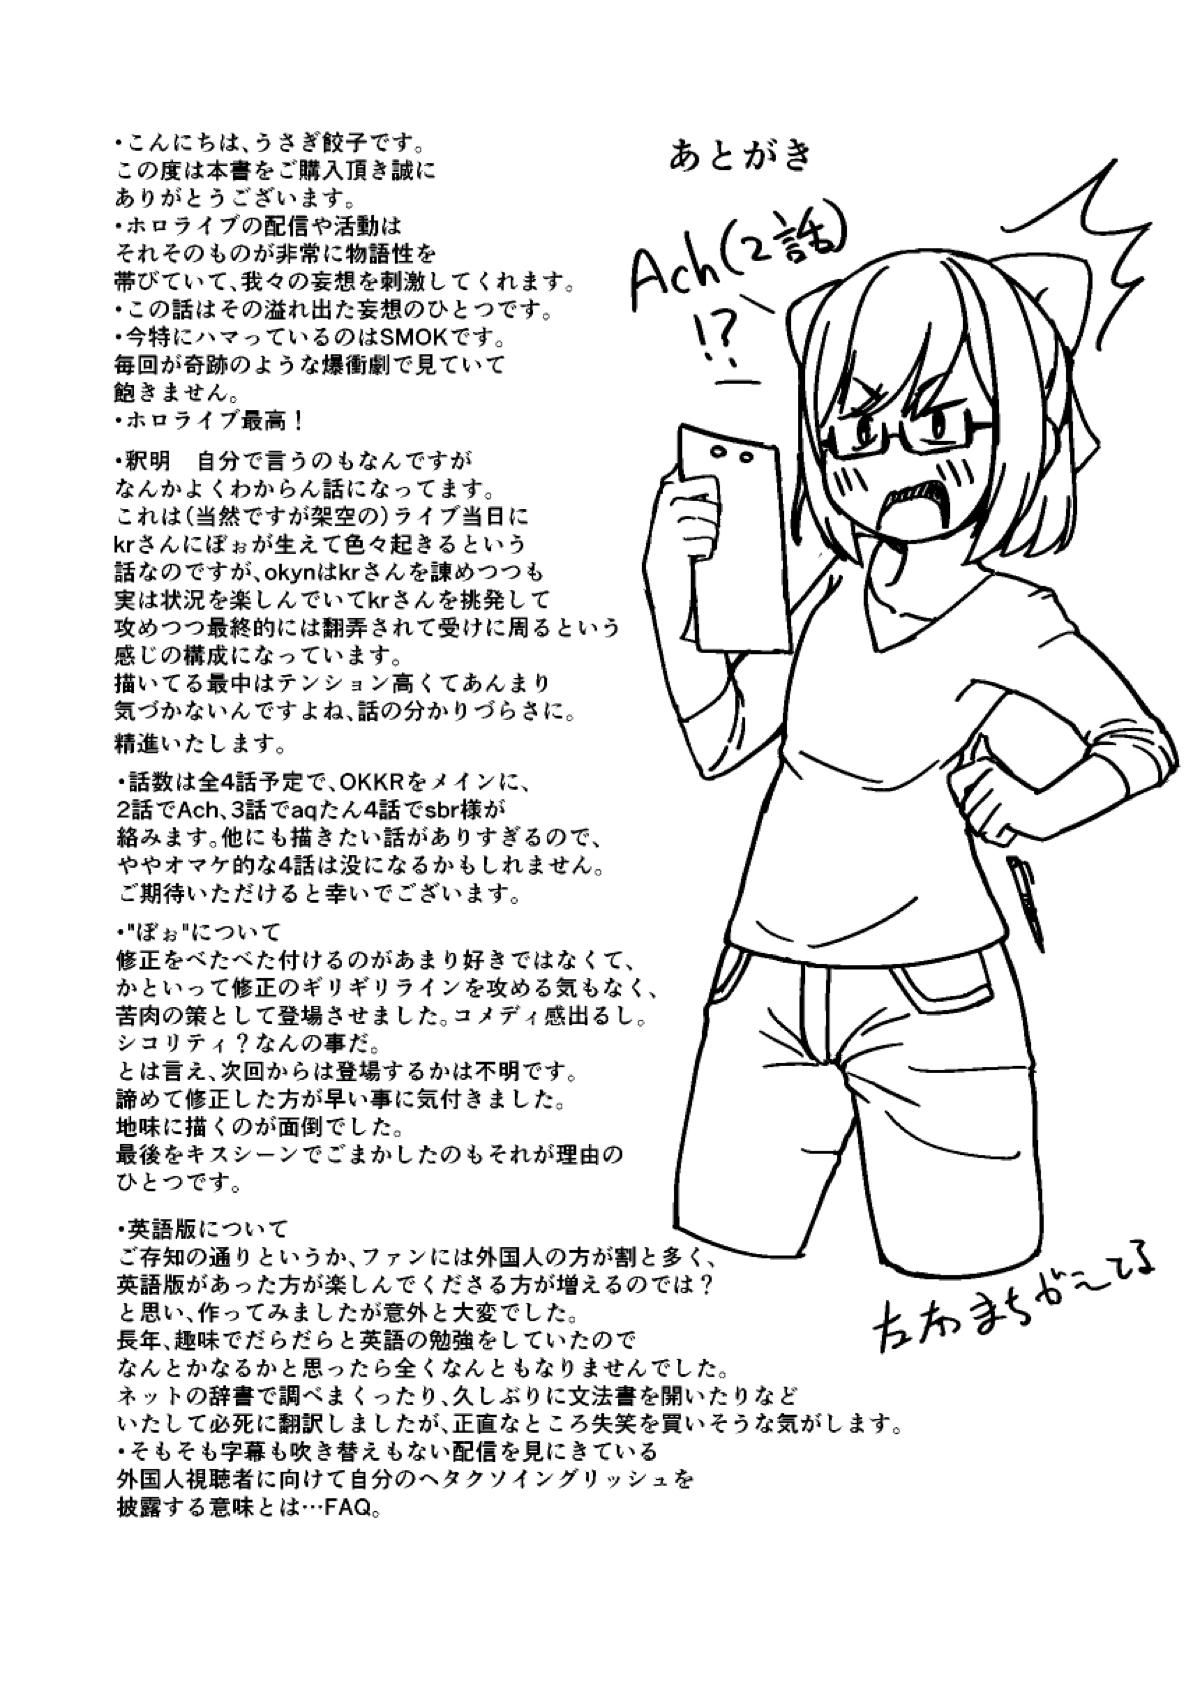 あとがき
・こんにちは、うさぎ餃子です。
この度は本書をご購入頂き誠に
ありがとうございます。
・ホロライブの配信や活動は
それそのものが非常に物語性を
帯びていて、我々の妄想を刺激してくれます。
・この話はその溢れ出た妄想のひとつです。
・今特にハマっているのはSMOKです。
毎回が奇跡のような爆衝劇で見ていて
飽きません。
・ホロライブ最高！
・釈明　自分で言うのもなんですが
なんかよくわからん話になってます。
これは（当然ですが架空の）ライブ当日に
krさんにぼぉが生えて色々起きるという
話なのですが、okynはkrさんを諫めつつも
実は状況を楽しんでいてkrさんを挑発して
攻めつつ最終的には翻弄されて受けに周るという
感じの構成になっています。
描いてる最中はテンション高くてあんまり
気づかないんですよね、話の分かりづらさに。
精進いたします。
・話数は全4話予定で、OKKRをメインに、
2話でAch、3話でaqたん4話でsbr様が
絡みます。他にも描きたい話がありすぎるので、
ややオマケ的な4話は没になるかもしれません。
ご期待いただけると幸いでございます。
・"ぼぉ"について
修正をべたべた付けるのがあまり好きではなくて、
かといって修正のギリギリラインを攻める気もなく、
苦肉の策として登場させました。コメディ感出るし。
シコリティ？なんの事だ。
とは言え、次回からは登場するかは不明です。
諦めて修正した方が早い事に気付きました。
地味に描くのが面倒でした。
最後をキスシーンでごまかしたのもそれが理由の
ひとつです。
・英語版について
ご存知の通りというか、ファンには外国人の方が割と多く、
英語版があった方が楽しんでくださる方が増えるのでは？
と思い、作ってみましたが意外と大変でした。
長年、趣味でだらだらと英語の勉強をしていたので
なんとかなるかと思ったら全くなんともなりませんでした。
ネットの辞書で調べまくったり、久しぶりに文法書を開いたりなど
いたして必死に翻訳しましたが、正直なところ失笑を買いそうな気がします。
・そもそも字幕も吹き替えもない配信を見にきている
外国人視聴者に向けて自分のヘタクソイングリッシュを
披露する意味とは…FAQ。
Ach(2話)
!?
左右まちがえてる